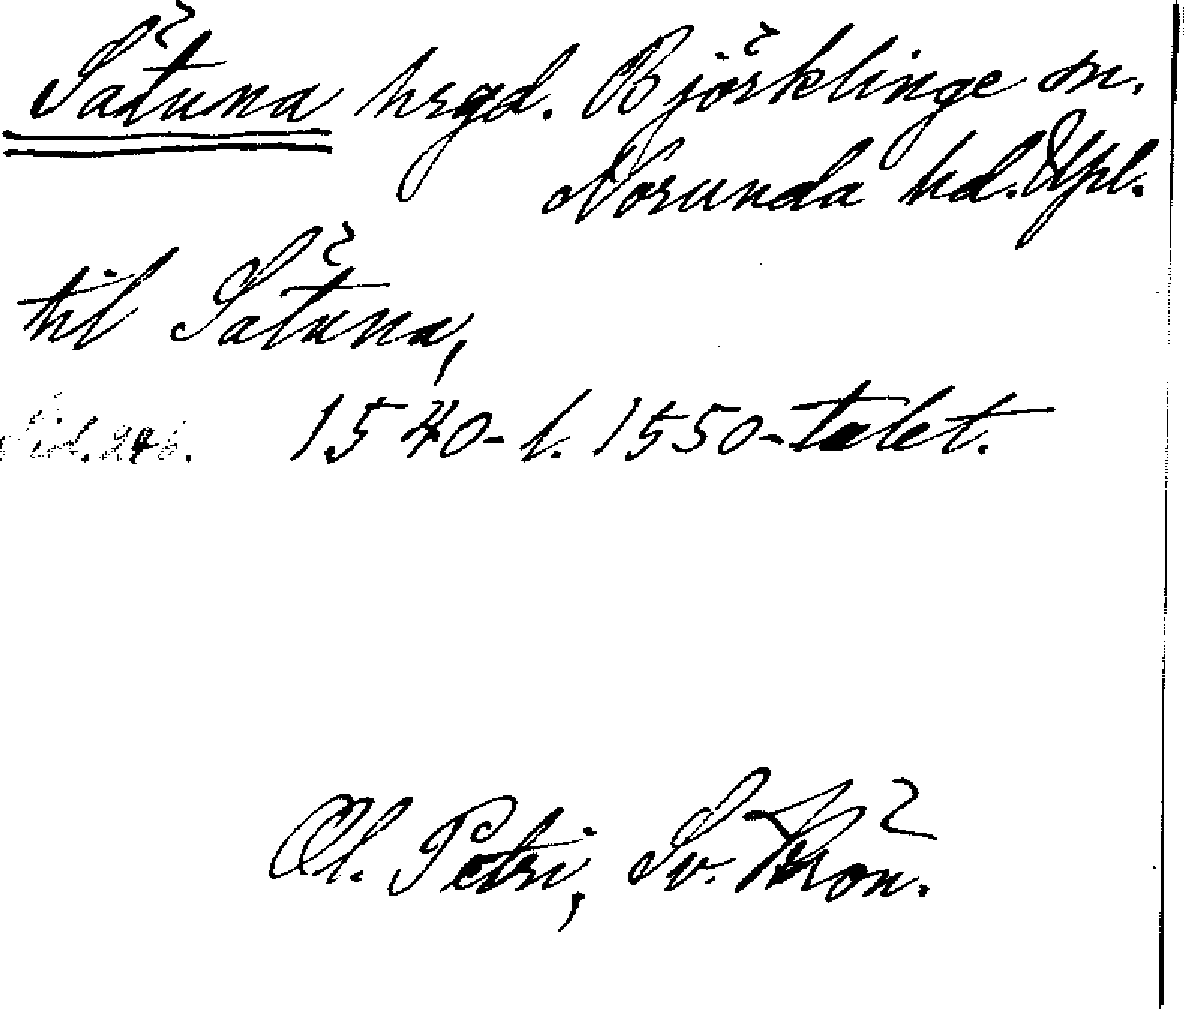 Sätuna hrgd. Björklinge sn.
Norunda hd. Upl.
til Sätuna,
Sid. 246. 1540- l. 1550-talet.
Ol. Petri, Sv. Krön.